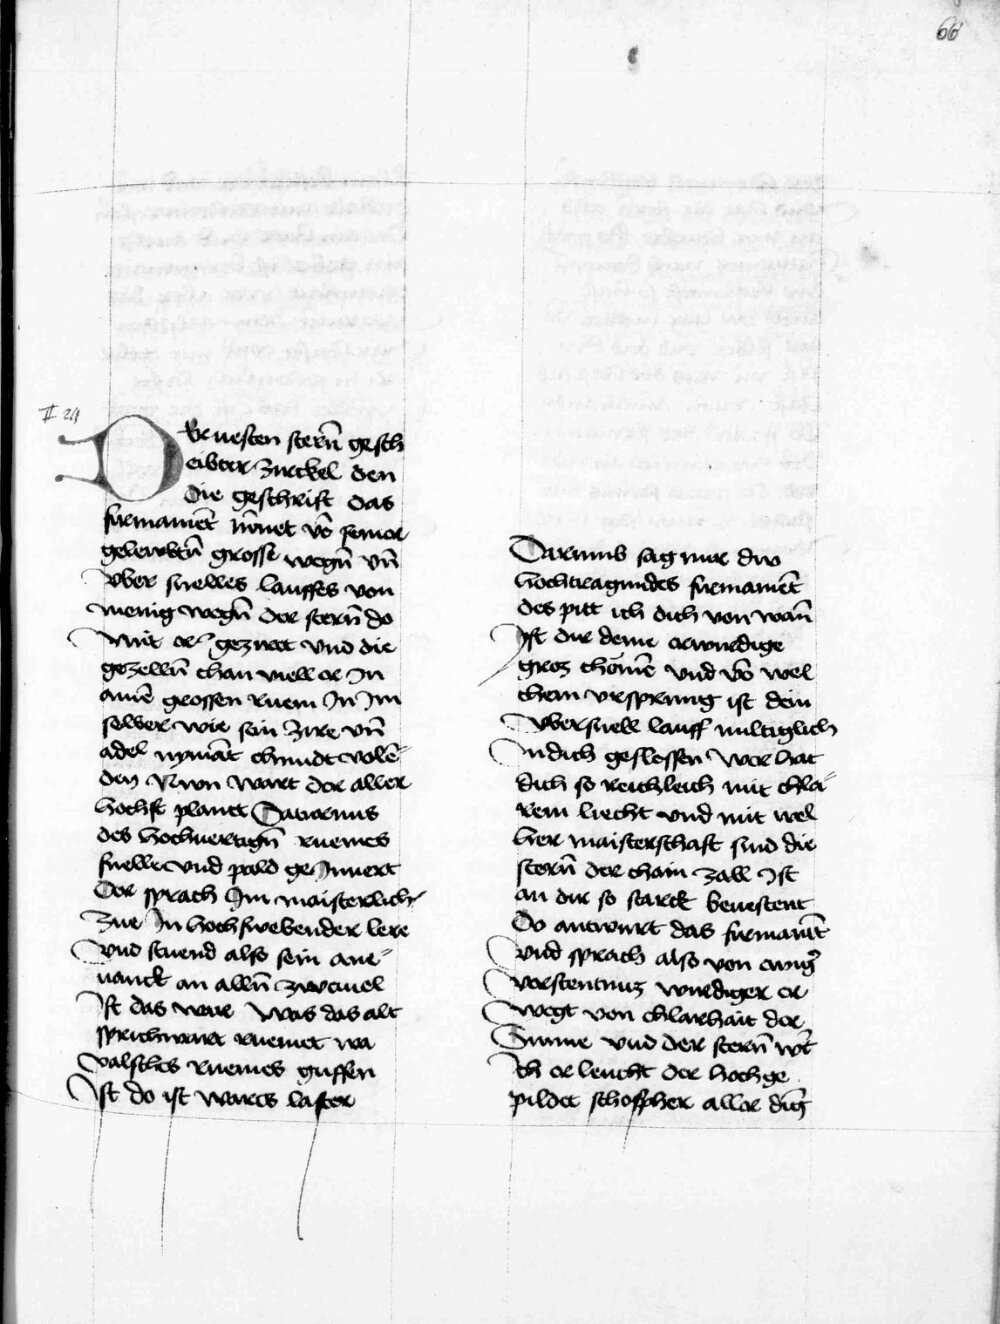 66
II 24
Der uesten sterñ gesch
eibter zirckel den
die geschrift das
firmamēt nēnet vō seiner
geleubtñ grosse wegñ vñ
vber snelles lauffes von
menig wegñ der sterñ do
mit er gezirt vnd die
gezellñ chan niell er In
ainē grossen ruem In Im
selber wie sein zire vñ
adel nymāt chundt volē
den Nvn wart der aller
hochst planet Saturnus
des hochuertigñ ruemes
snelle vnd pald geInnert
Der sprach Im maisterlich
zue In hochswebender lere
vnd stuend also sein ane
uanck an allñ zweiuel
Ist das war Was das alt
sprichwart ruemet wa
valsches ruemes guffen
Ist do ist warts laster
Darumb sag mir dw
hochtragundes firmamēt
des pitt ich dich von wañ
Ist dir deine erwirdige
gros chōmē vnd vō wel
chem vrsprung ist dein
vbersnell lauff miltiglich
In dich geflossen Wer hat
dich so reichleich mit chla
rem liecht vnd mit wel
her maisterschaft sind die
sterñ der chain zall Ist
an dir so starck beuestent
Do antwurt das firmamēt
vnd sprach also von ewig̃
verstentnuz wirdiger er
wegt von chlarhait der
Sunne vnd der sterñ wt̄
Ich erleucht der hochge
pildet schopfher aller dīg̃